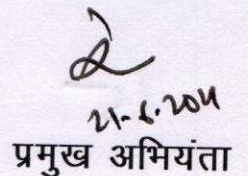 21.6.2011
प्रमुख अभियंता